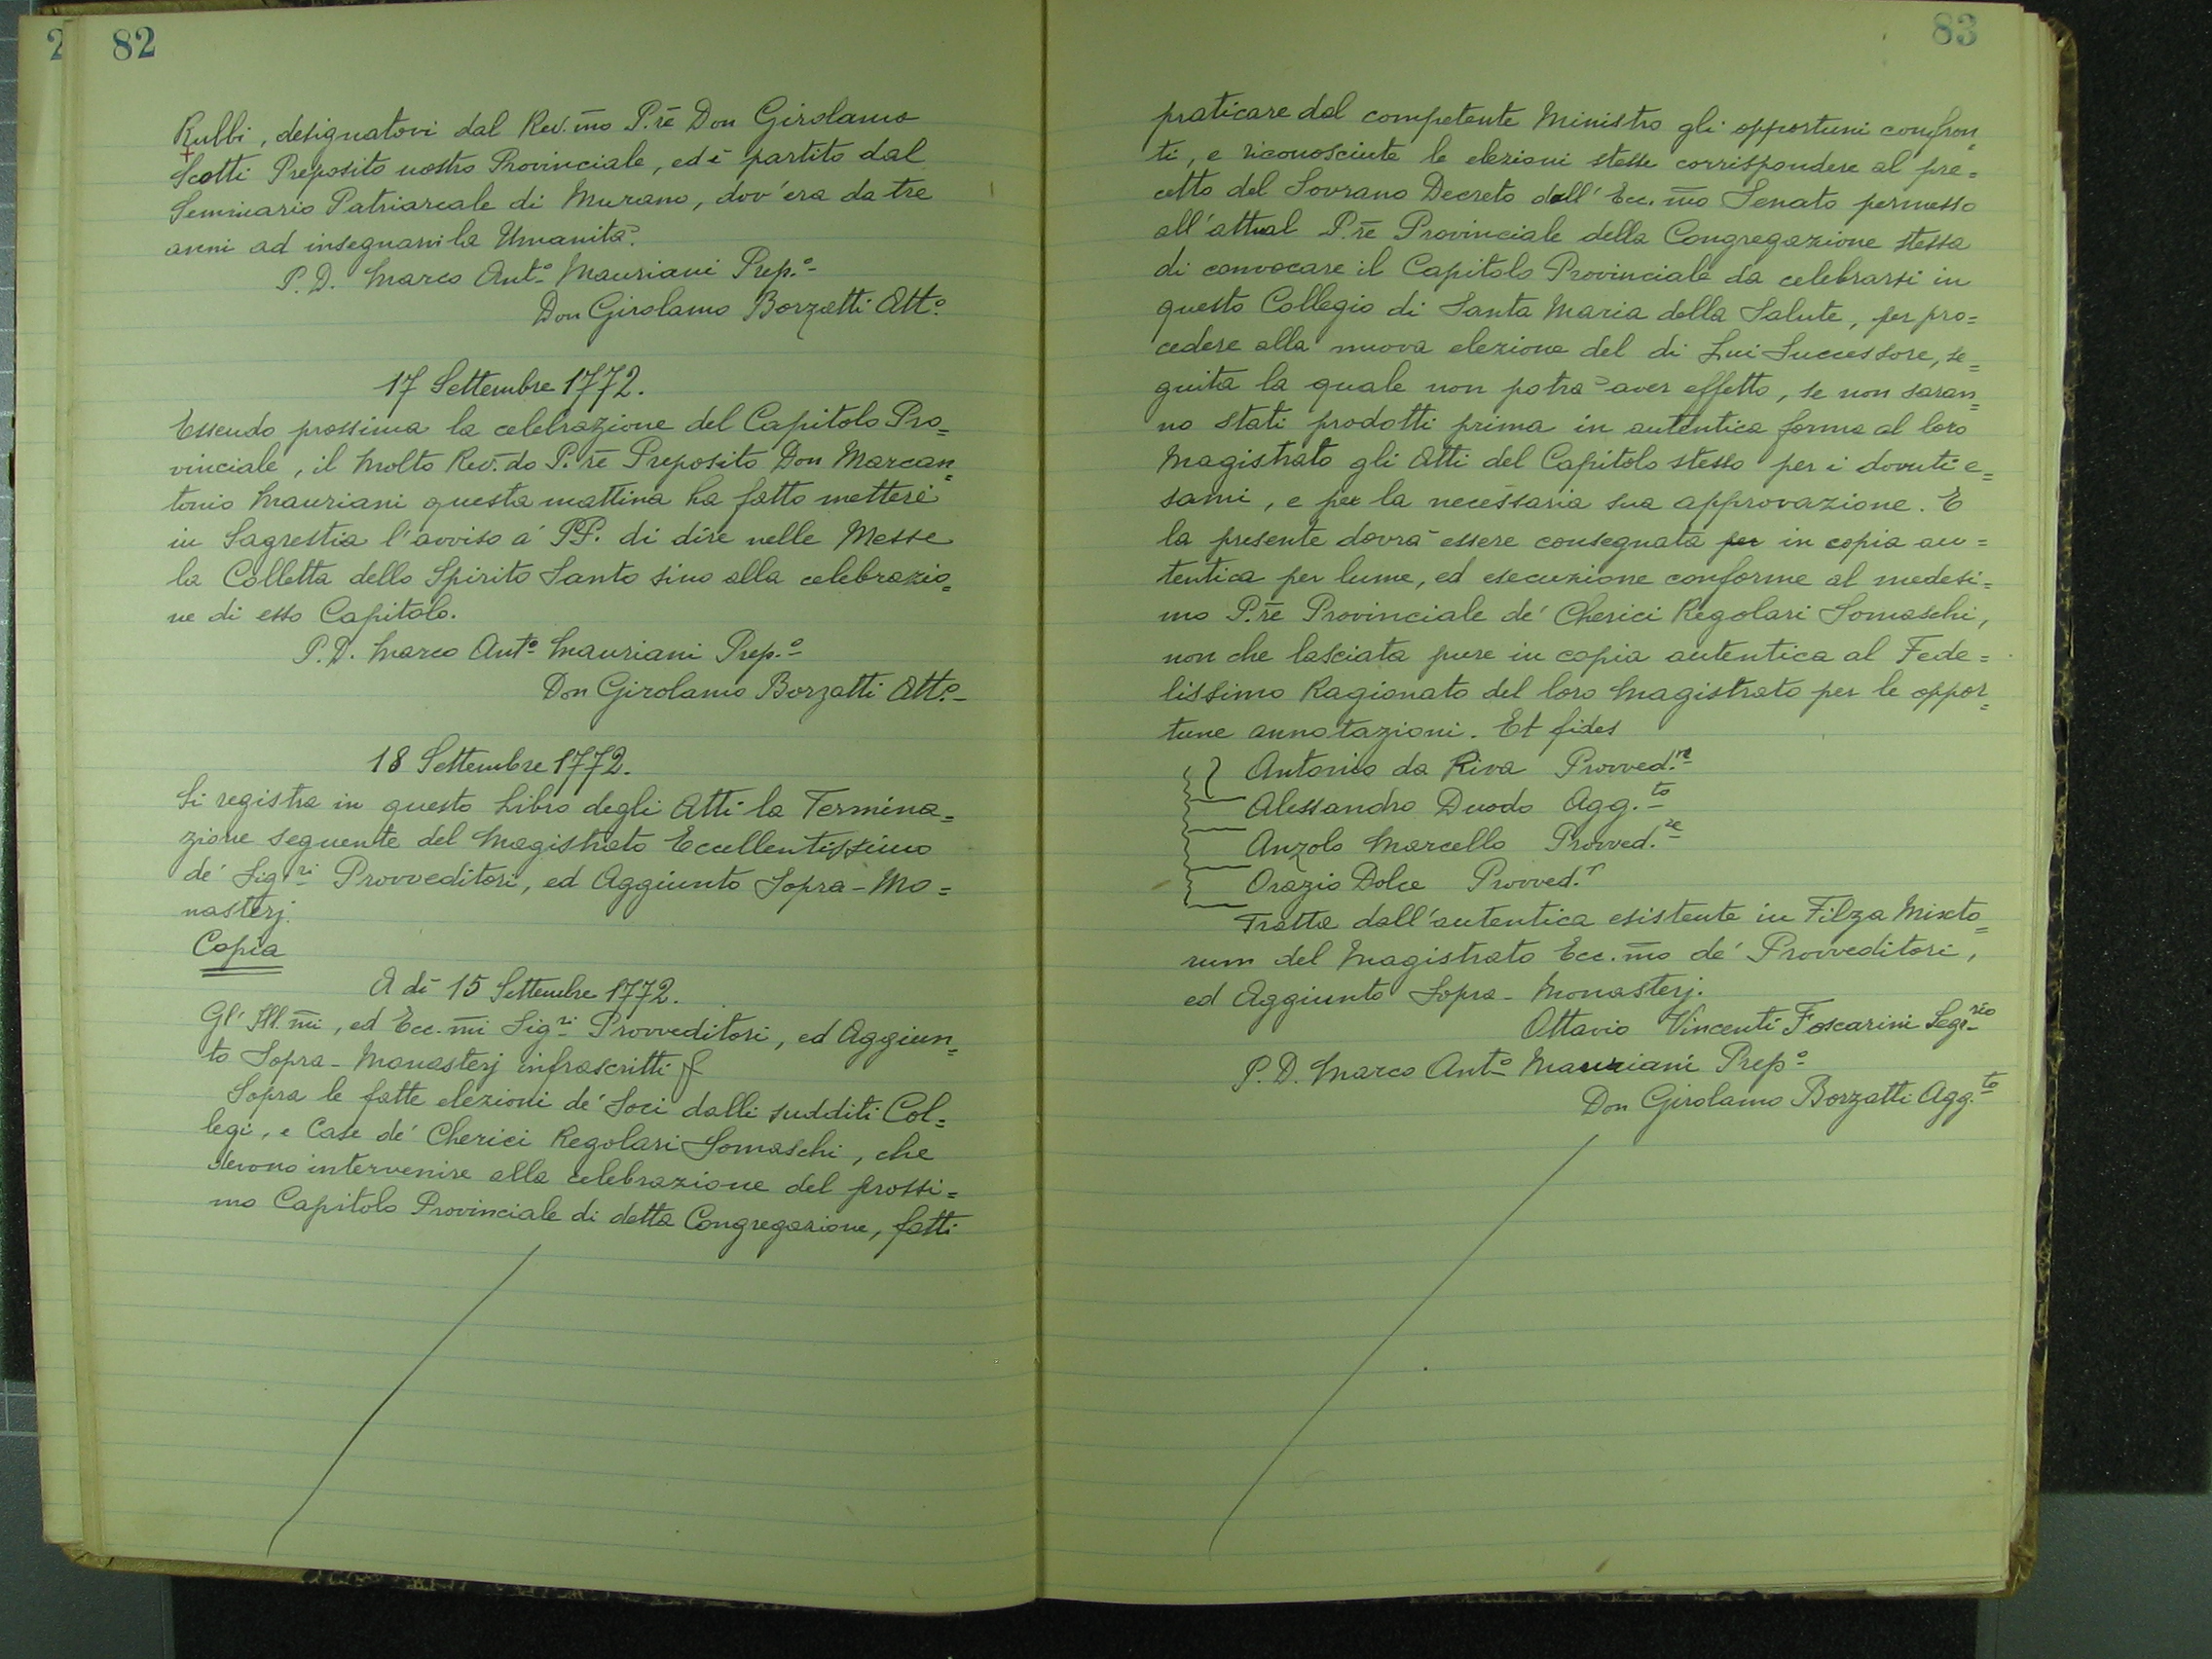 2 82
Rubbi, designatovi dal Rev.mo P.re Don Girolamo
+
Scotti Preposito nostro Provinciale, ed è partito dal
Seminario Patriarcale di Murano, dov'era da tre
anni ad insegnarvi la Umanità.
P. D. Marco Ant.o Mauriani Prep.o
Don Girolamo Borzatti Att.o
17 Settembre 1772.
Essendo prossima la celebrazione del Capitolo Pro=
vinciale, il Molto Rev.do P.re Preposito Don Marcan=
tonio Mauriani questa mattina ha fatto mettere
in Sagrestia l'avviso a' PP. di dire nelle Messe
la Colletta dello Spirito Santo sino alla celebrazio=
ne di esso Capitolo.
P. D. Marco Ant.o Mauriani Prep.o
Don Girolamo Borzatti Att.o
18 Settembre 1772.
Si registra in questo Libro degli Atti la Termina=
zione seguente del Magistrato Eccellentissimo
de' Sig.ri Provveditori, ed Aggiunto Sopra-Mo=
nasterj.
Copia
A dì 15 Settembre 1772.
Gl' Ill.mi, ed Ecc.mi Sig.ri Provveditori, ed Aggiun=
to Sopra-Monasterj infrascritti
Sopra le fatte elezioni de' Soci dalli sudditi Col=
legi, e Case de' Cherici Regolari Somaschi, che
devono intervenire alla celebrazione del prossi=
mo Capitolo Provinciale di detta Congregazione, fatti
83
praticare dal competente Ministro gli opportuni confron=
ti, e riconosciute le elezioni stesse corrispondere al pre=
cetto del Sovrano Decreto dell' Ecc.mo Senato permesso
all'attual P.re Provinciale della Congregazione stessa
di convocare il Capitolo Provinciale da celebrarsi in
questo Collegio di Santa Maria della Salute, per pro=
cedere alla nuova elezione del di Lui Successore, se=
guita la quale non potrà aver effetto, se non saran=
no stati prodotti prima in autentica forma al loro
Magistrato gli Atti del Capitolo stesso per i dovuti e=
sami, e per la necessaria sua approvazione. E
la presente dovrà essere consegnata per in copia au=
tentica per lume, ed esecuzione conforme al medesi=
mo P.re Provinciale de' Cherici Regolari Somaschi,
non che lasciata pure in copia autentica al Fede=
lissimo Ragionato del loro Magistrato per le oppor=
tune annotazioni. Et fides
Antonio da Riva Provved.re
Alessandro Duodo Agg.to
Anzolo Marcello Provved.re
Orazio Dolce Provved.r
Tratta dall'autentica esistente in Filza Mixto=
rum del Magistrato Ecc.mo de' Provveditori,
ed Aggiunto Sopra-Monasterj.
Ottavio Vincenti Foscarini Segr.rio
P. D. Marco Ant.o Mauriani Prep.o
Don Girolamo Borzatti Agg.to